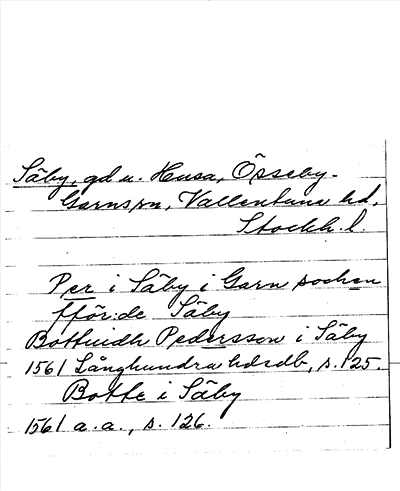 Säby, gd u. Husa, Össeby-
Garns sn, Vallentuna hd,
Stockh. l.
Per i Säby i Garn sochen
fför:de Säby
Bottuidh Pedersson i Säby
1561 Långhundra hdsdb, s. 125.
Botte i Säby
1561 a.a., s. 126.